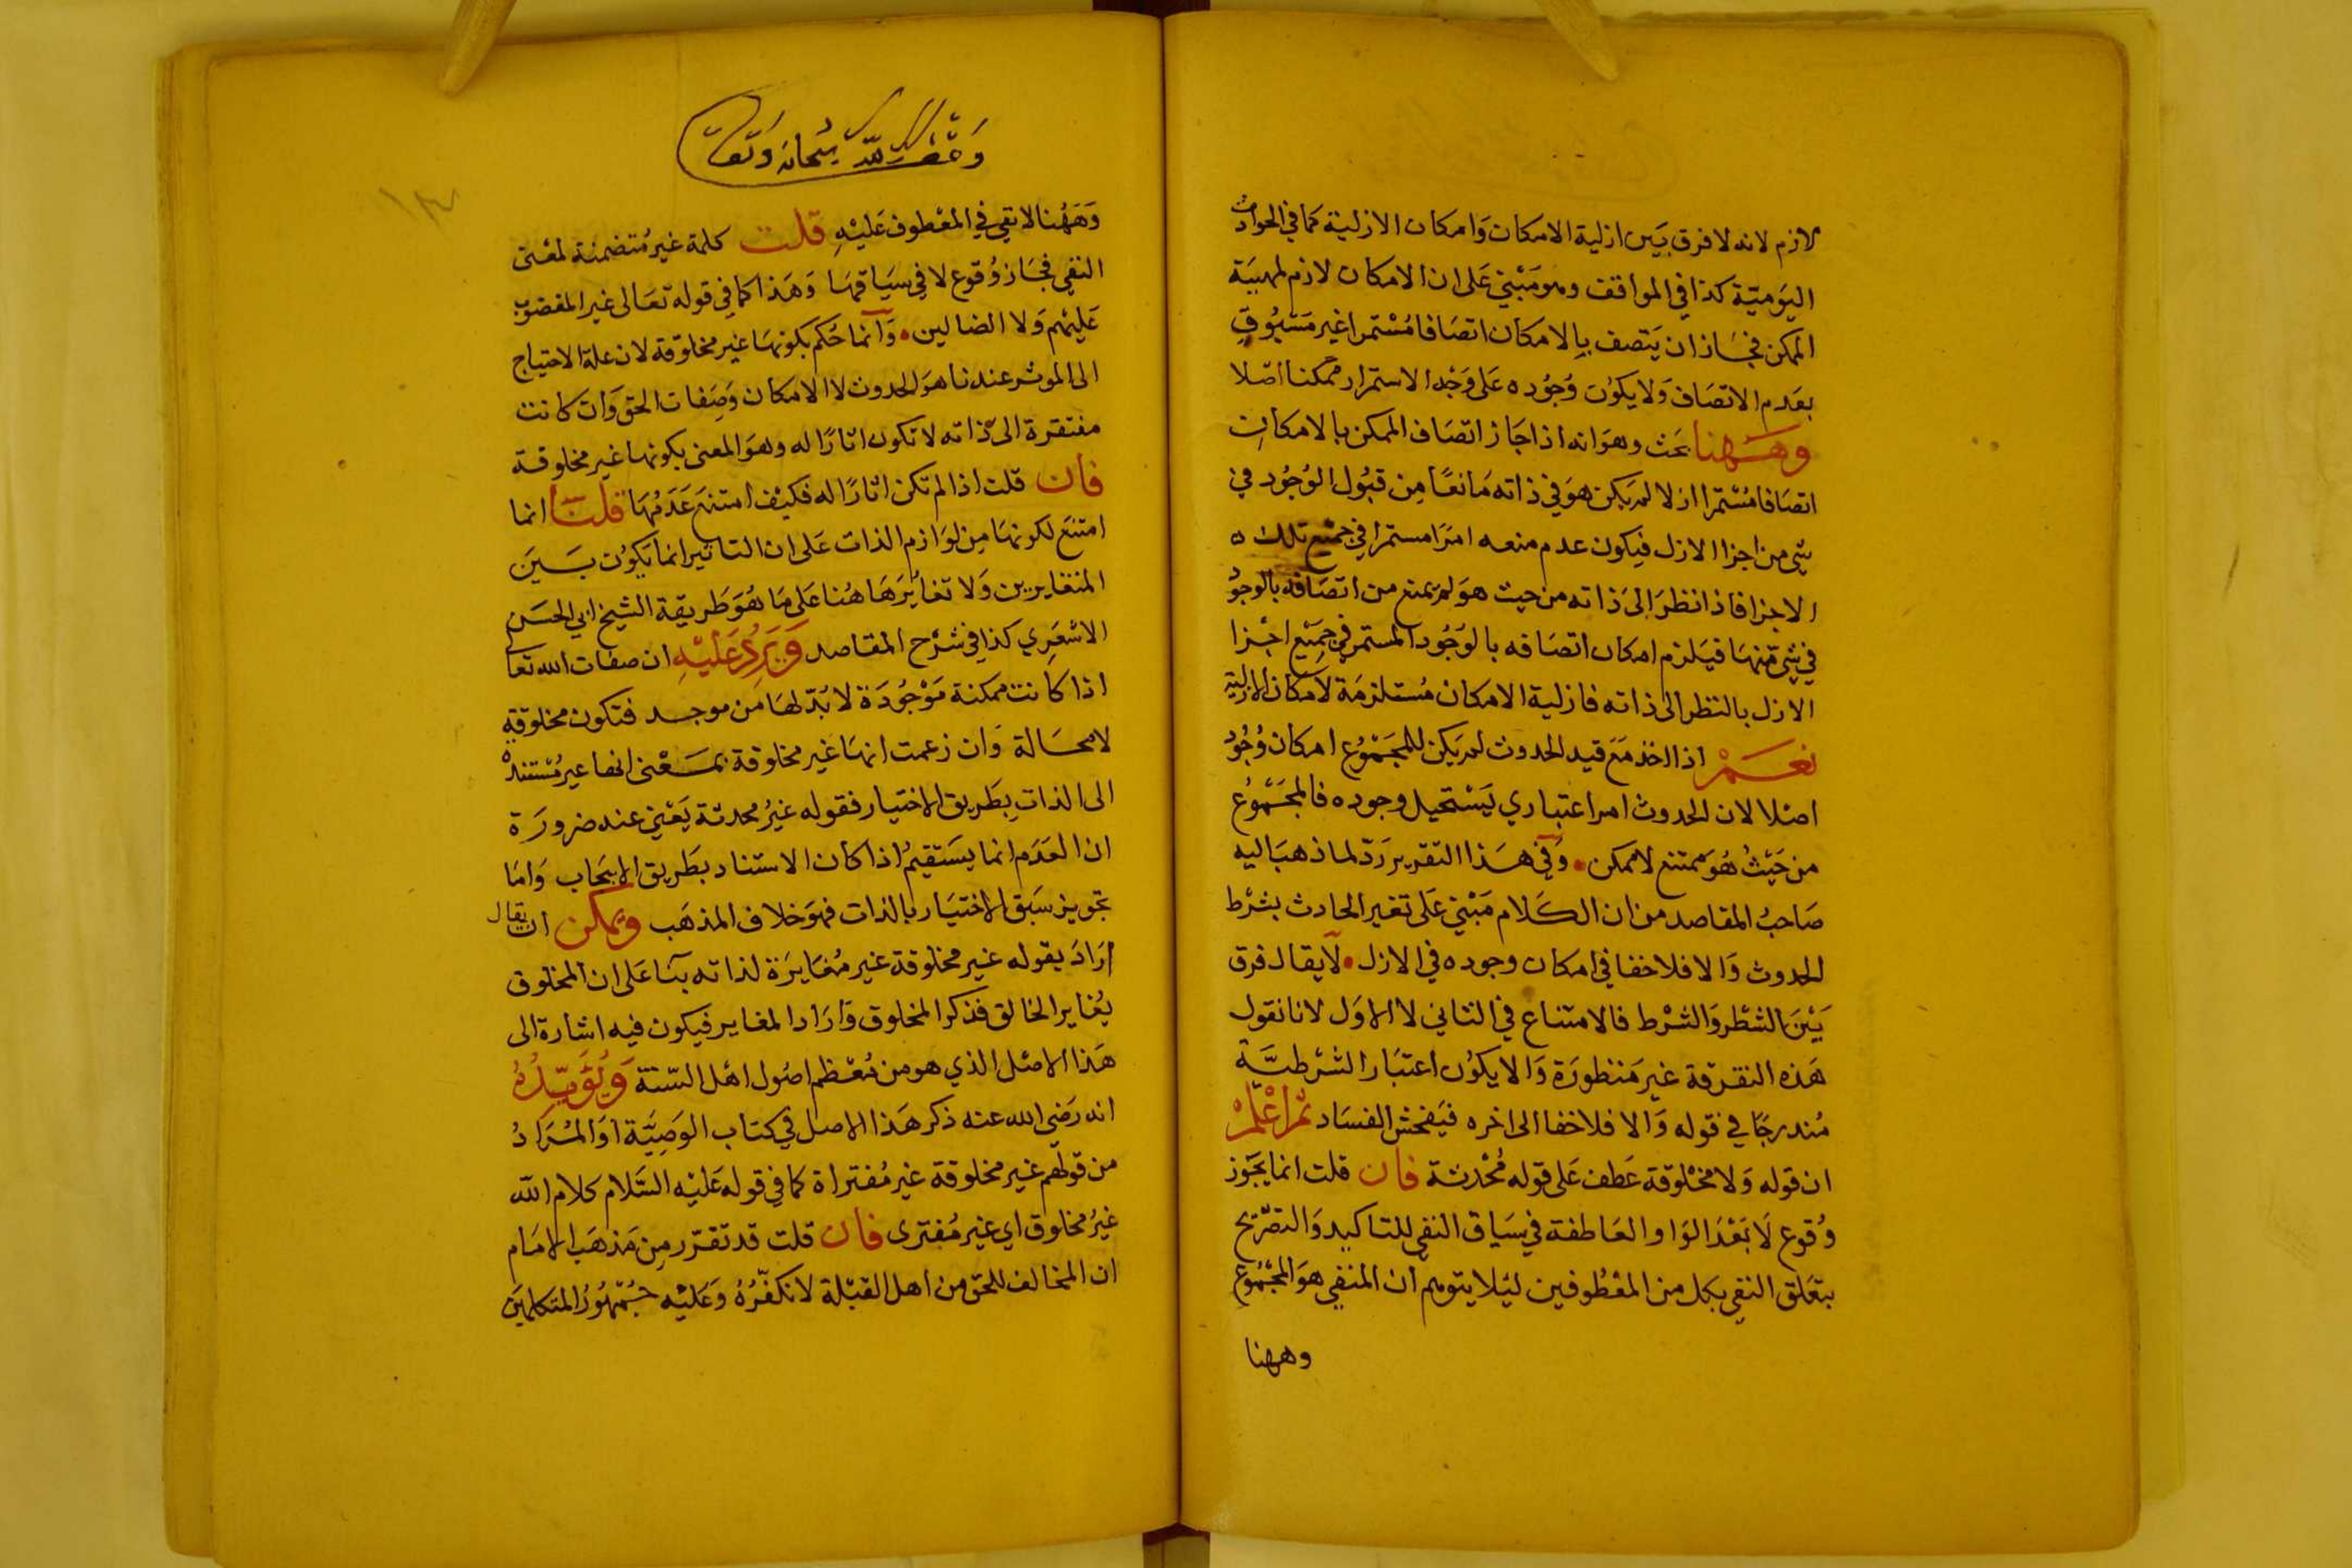 لازم لانه لا فرق بَيَن ازلية الامكان وَامكان الازلية كما في الحوادث
اليَوميّة كذا في المواقف وهو مَبْني عَلى ان الامكان لازم لمهيَة
الممكن فجَازان يَتصف بالامكان اتصَافا مُسْتمرا غير مَسْبُوق
بعَدم الاتصَاف وَلا يكوُن وُجُوده عَلى وَجْه الاستمرار ممكنا اصْلا
وهَهنا بحَث وهوَ انه اذا جَاز اتصَاف الممكن بالامكان
اتصَافا مُسْتمرا ازلا لم يَكن هوَ في ذاته مَانعًا مِن قبُول الوُجُود في
شي من اجزا الازل فيكون عدم منعه امرَا مستمرا في جمْيع تلك
الاجزا فاذا نظرَ الى ذاته من حيث هوَ لم يمنع من اتصَافه بالوجوُد
في شي مّنهَا فيَلزم امكان اتصَافه بالوُجُود المستمر في جمِيْع اجْزا
الازل بالنظر الى ذاته فازلية الامكان مُستلزمَة لامكان الازلية
نعَمْ اذا اخذ مَعَ قيد الحدوث لم يَكن للمجَمْوُع امكان وُجُود
اصْلا لان الحدوث امر اعتباري يَسْتحيل وجوده فالمجَمْوُع
من حَيْثُ هُوَ ممتنع لا ممكن وَفي هَذا التقرير رَدّ لما ذهبَ اليه
صَاحبُ المقاصد من ان الكَلام مَبْني عَلى تغير الحادث بشرْط
الحدوث وَالا فلا خفا في امكان وجوده في الازل لا يقال فرق
بَيْنَ الشطْر وَالشرْط فالامتناع في الثاني لا الاوَل لانا نقول
هَذه التفرقة غير مَنظورَة وَالا يكوُن اعتبَار الشرْطيَّة
مُندرجًا في قوله وَالا فلا خفا الى اخره فيَفحش الفسَاد ثم اعْلمْ
ان قوله وَلا مخْلوقة عَطف عَلى قوله مُحْدثة فان قلت انما يَجَوز
وُقوع لَا بَعْدَ الوَاو العَاطفة في سيَاق النفي للتاكيد وَالتصْريح
بتعَلق النفي بكل من المعْطُوفين ليَلا يتوهم ان المنفي هوَ المجْمُوع
وههنا
وَقف لله سُبحانه وَتعَالى
وَهَهُنا لا نفي في المعْطوف عَليْهِ قلت كلمة غير مُتضمنة لمعْنى
النفي فجَاز وُقوع لا في سيَاقهَا وَهَذا كما في قوله تعَالى غير المغضوب
عَليْهم وَلا الضالين وَانما حَكم بكونهَا غير مخلوقة لان علة الاحتياج
الى الموثر عندنا هوَ الحدوث لا الامكان وَصِفات الحق وَان كانت
مفتقرة الى ذاته لا تكون اثارًا له وهوَ المعنى بكونها غير مخلوقة
فان قلت اذا لم تكن اثارًا له فكيْف امتنع عَدَمُهَا قلنَا انما
امتنعَ لكونهَا مِن لوَازم الذات عَلى ان التاثير انما يَكوُن بَيَن
المتغايرين وَلا تغايُرَ هَاهُنا عَلى مَا هُوَ طَريقة الشيخ ابي الحسَن
الاشعَري كذا في شَرْح المقاصد وَيَرِدُ عَليْهِ ان صفات الله تعا
اذا كانت ممكنة مَوْجُودَة لا بُدّ لهَا مَن موجد فتكون مخلوقة
لا محَالة وَان زعمت انهَا غير مخلوقة بمَعْنى انها غير مُسْتندة
الى الذات بِطَريق الاختيار فقوله غيرُ محدثة يَعْني عنه ضرورَة
ان العَدَم انما يسَتقيمُ اذا كان الاستناد بطَريق الايجَاب وَامَا
تجويز سَبَق الاختيَار بالذات فهوَ خلاف المذهَب ويمكن ان يقال
ارَادَ بقوله غير مخلوقة غير مُغايرَة لذاته بنَا عَلى ان المخلوق
يُغاير الخالق فذكر المخلوق وَارَاد المغاير فيكون فيه اشارة الى
هَذا الاصْل الذي هو من مُعْظم اصُول اهْل السّنة وَيُؤَيّدُهُ
انه رَضي الله عنه ذكر هَذا الاصل في كتاب الوَصِيَّة اوَالمُرَادُ
من قولهم غير مخلوقة غير مُفتراة كما في قوله عَليْه السَّلام كلام الله
غيرُ مخلوق اي غير مُفترى فان قلت قد تقرّر مِن مَذهَب الامَام
ان المخالف للحق من اهل القبْلة لا نكفّرُهُ وَعَليْه جُمْهُورُ المتكلمينَ